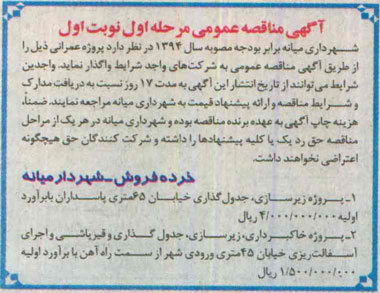 آگهی مناقصه عمومی مرحله اول نوبت اول
شهرداری میانه برابر بودجه مصوبه سال ۱۳۹۴ در نظر دارد پروژه عمرانی ذیل را
از طریق آگهی مناقصه عمومی به شرکت‌های واجد شرایط واگذار نماید. واجدین
شرایط می‌توانند از تاریخ انتشار این آگهی به مدت ۱۷ روز نسبت به دریافت مدارک
و شرایط مناقصه و ارائه پیشنهاد قیمت به شهرداری میانه مراجعه نمایند. ضمناً،
هزینه چاپ آگهی به عهده برنده مناقصه بوده و شهرداری میانه در هر یک از مراحل
مناقصه حق رد یک یا کلیه پیشنهادها را داشته و شرکت کنندگان حق هیچگونه
اعتراضی نخواهند داشت.
خرده فروش - شهردار میانه
۱- پروژه زیرسازی، جدول‌گذاری خیابان ۶۵متری پاسداران بابرآورد
اولیه ۴/۰۰۰/۰۰۰/۰۰۰ ریال
۲- پروژه خاکبرداری، زیرسازی، جدول گذاری و قیرپاشی و اجرای
آسفالت ریزی خیابان ۴۵متری ورودی شهر از سمت راه آهن با برآورد اولیه
۱/۵۰۰/۰۰۰/۰۰۰ ریال